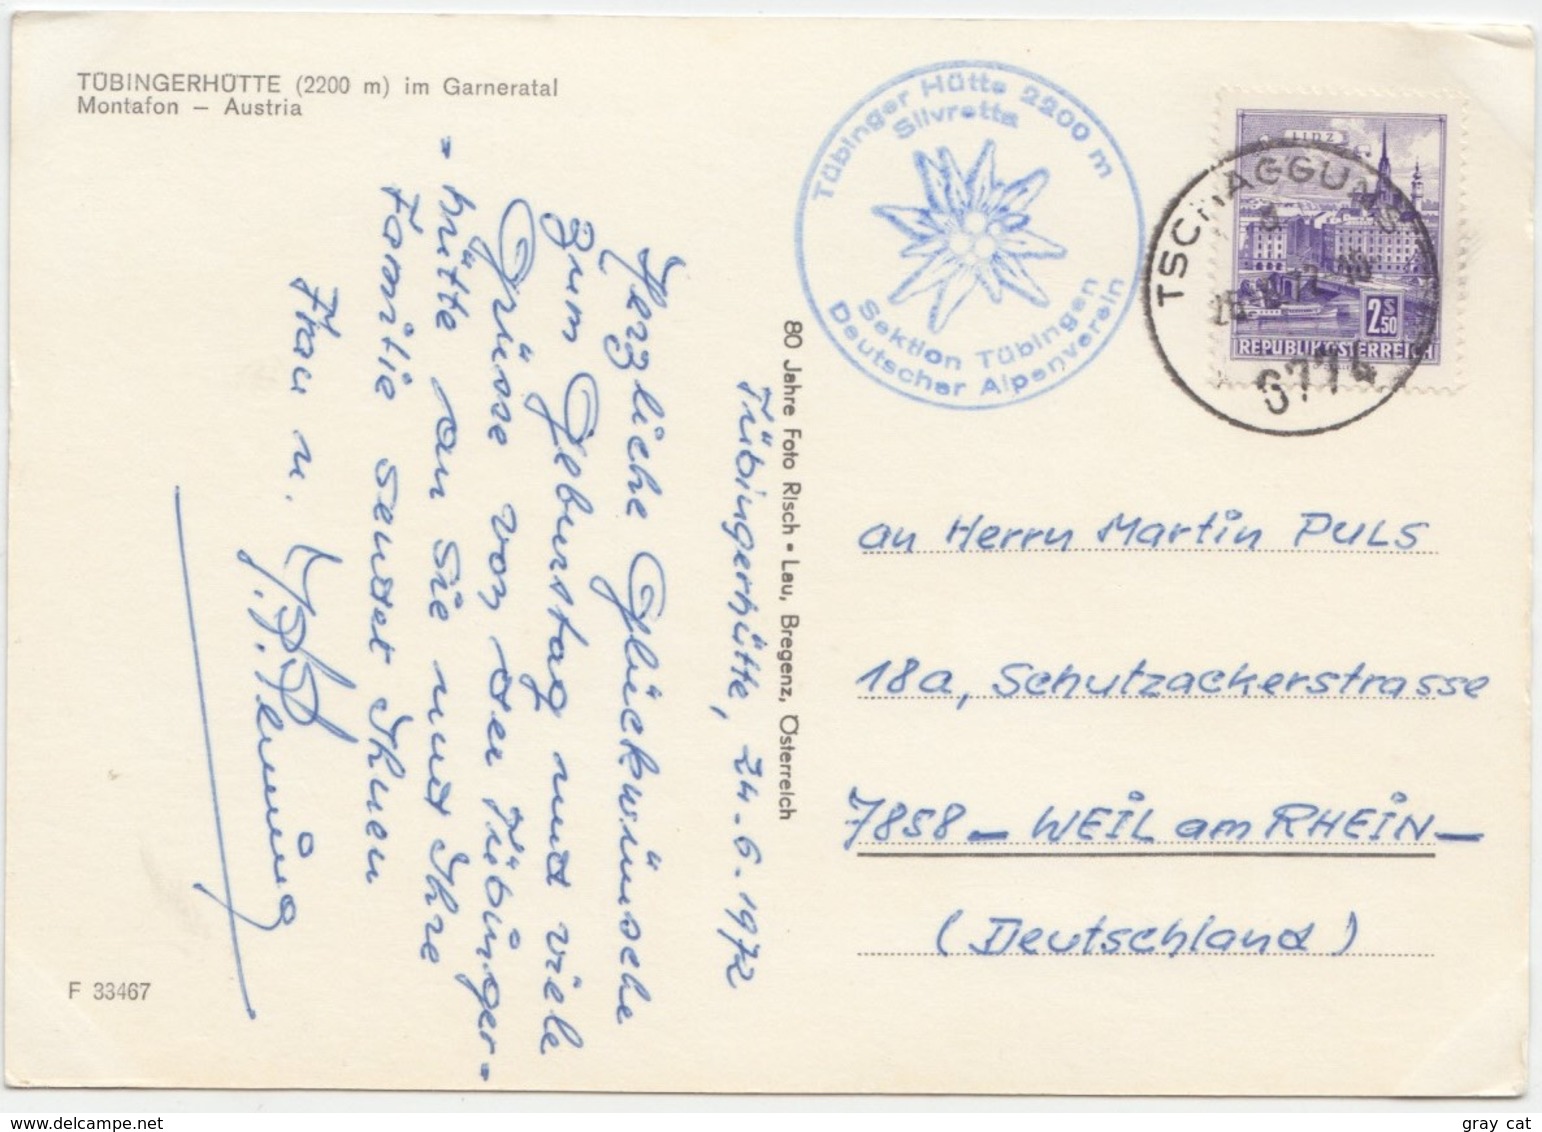 TÜBINGERHÜTTE (2200 m) im Garneratal
Montafon – Austria
Tübingerhütte, 24-6-1972
Herzliche Glückwünsche
zum Geburtstag und viele
Grüsse von der Tübinger-
-hütte an Sie und Ihre
Familie sendet Ihnen
Frau u.
F 33467
80 Jahre Foto Risch • Lau, Bregenz, Österreich
Tübinger Hütte 2200 m
Silvretta
Sektion Tübingen
Deutscher Alpenverein
LINZ
2S50
REPUBLIK ÖSTERREICH
TSCHAGGUNS
6774
an Herrn Martin PULS
18a, Schutzackerstrasse
7858 – WEIL am RHEIN –
(Deutschland)
www.delcampe.net
gray cat